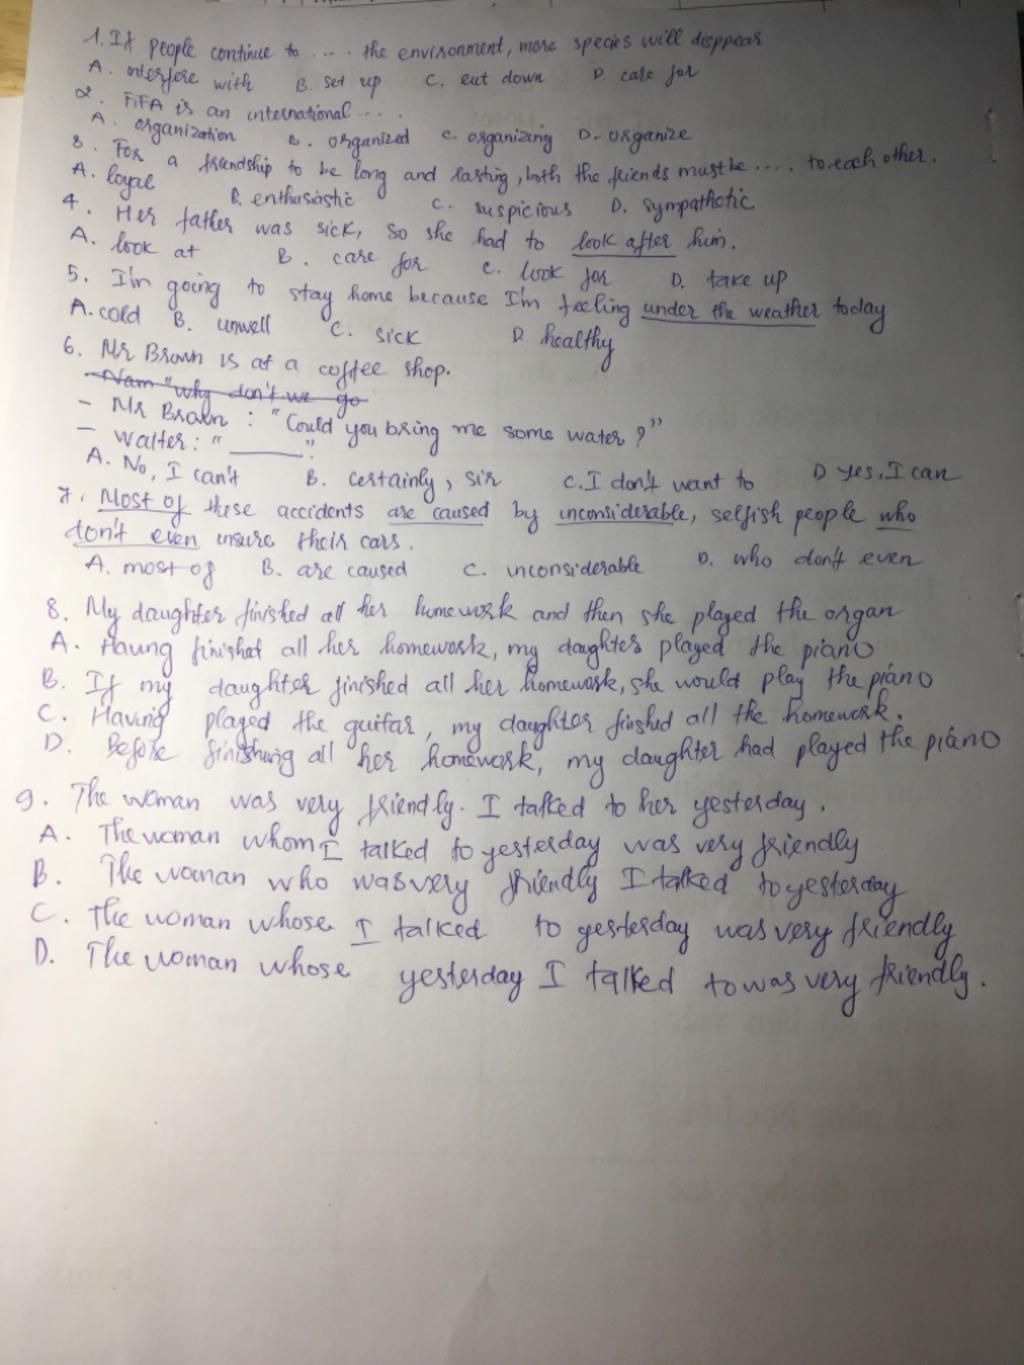 1. If people continue to .... the environment, more species will disppear
A. interfere with B. set up C. cut down D. care for
2. FIFA is an international ....
A. organization B. organized C. organizing D. organize
3. For a friendship to be long and lasting, both the friends must be .... to each other.
A. loyal B. enthusiastic C. suspicious D. sympathetic
4. Her father was sick, so she had to look after him.
A. look at B. care for C. look for D. take up
5. I'm going to stay home because I'm feeling under the weather today
A. cold B. unwell C. sick D. healthy
6. Mr Brown is at a coffee shop.
Nam "why don't we go
- Mr Brown : "Could you bring me some water ?"
- Walter: "______".
A. No, I can't B. certainly, sir C. I don't want to D yes, I can
7. Most of these accidents are caused by inconsiderable, selfish people who
don't even insure their cars.
A. most of B. are caused C. inconsiderable D. who don't even
8. My daughter finished all her homework and then she played the organ
A. Having finished all her homework, my daughter played the piano
B. If my daughter finished all her homework, she would play the piano
C. Having played the guitar, my daughter finshed all the homework.
D. Before finishing all her homework, my daughter had played the piano
9. The woman was very friendly. I talked to her yesterday.
A. The woman whom I talked to yesterday was very friendly
B. The woman who was very friendly I talked to yesterday
C. The woman whose I talked to yesterday was very friendly
D. The woman whose yesterday I talked to was very friendly.